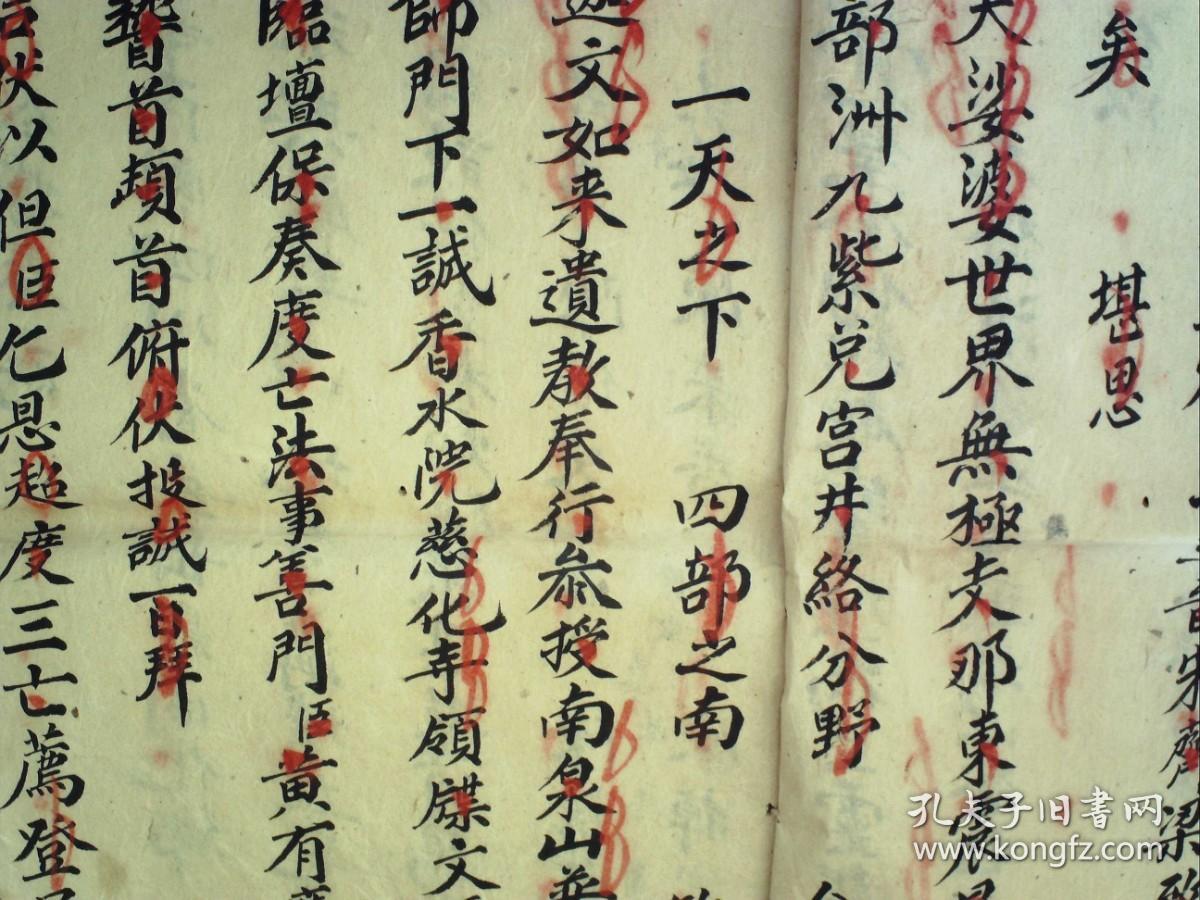 朱齊梁
矣 堪思
天娑婆世界無極支那東震旦
部洲九紫兌宮井絡分野
一天之下 四部之南
迦文如来遺教奉行叅授南泉山普
師門下一誠香水院慈化寺領牒文
臨壇保奏度亡法事善門臣黄有
稽首頓首俯伏投誠百拜
伏以但臣乞恳超度三亡薦登
孔夫子旧书网
www.kongfz.com